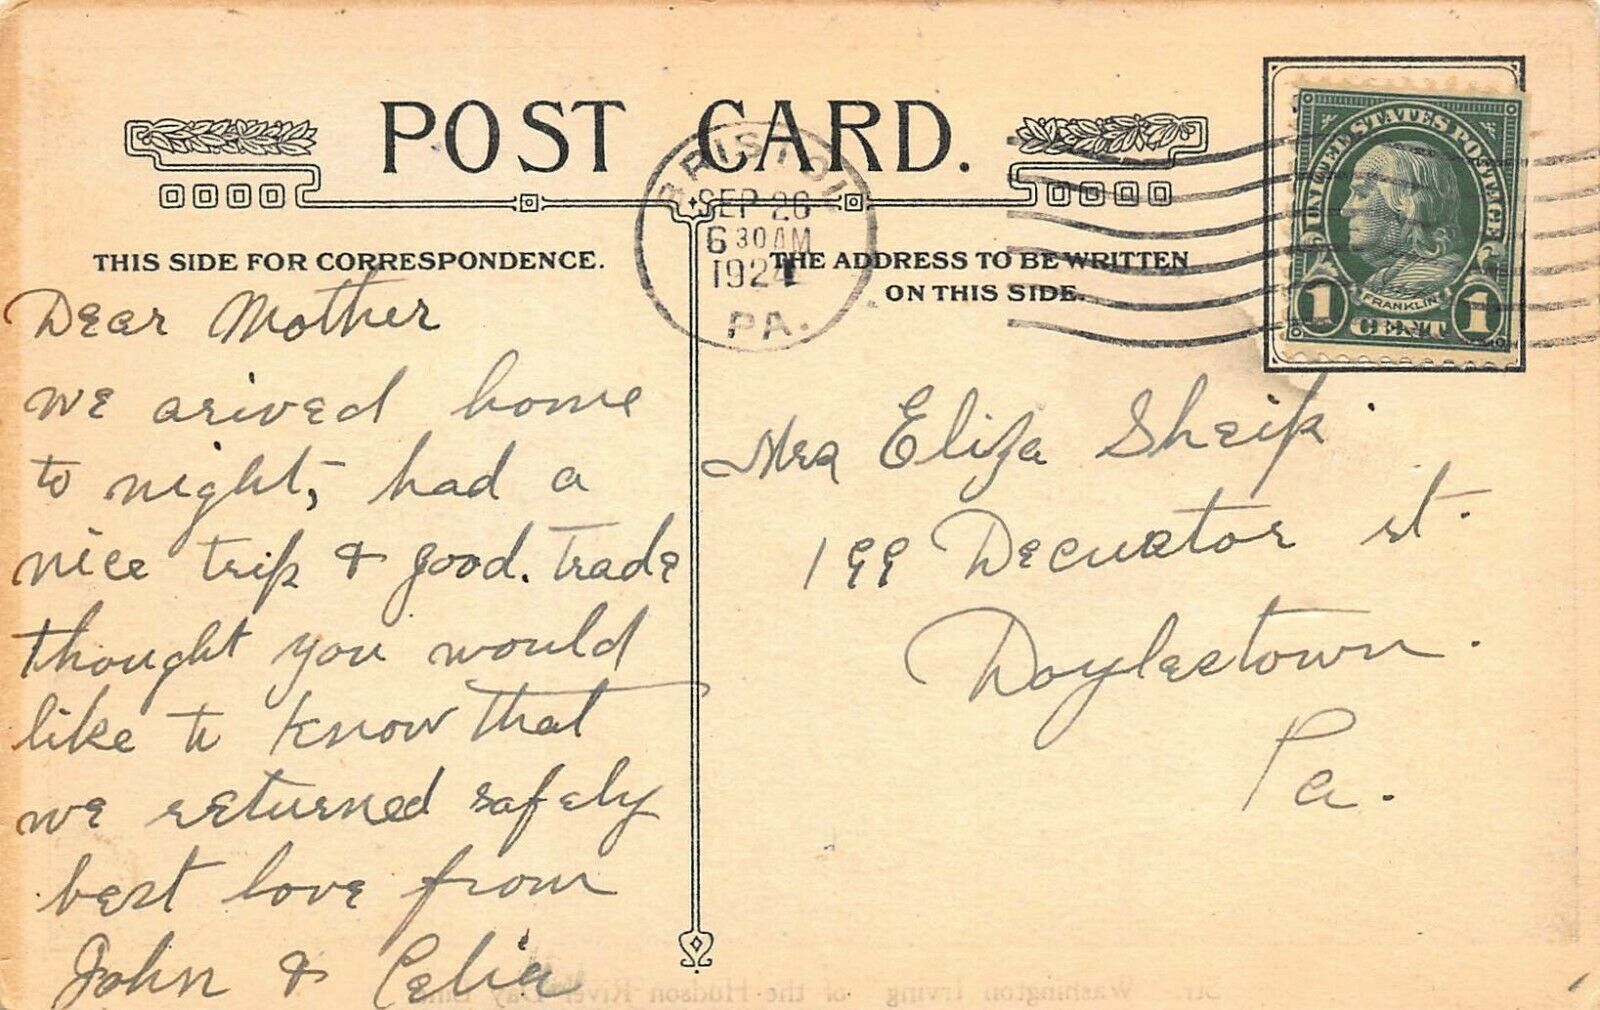 POST CARD.
BRISTOL
SEP 26
6 30 AM
1924
PA.
UNITED STATES POSTAGE
FRANKLIN
1 CENT 1
THIS SIDE FOR CORRESPONDENCE.
THE ADDRESS TO BE WRITTEN
ON THIS SIDE.
Dear Mother
we arived home
to night, had a
nice trip & good. trade
thought you would
like to know that
we returned safely
best love from
John & Celia
Mrs Eliza Sheip
199 Decuator st.
Doylestown.
Pa.
Str. Washington Irving of the Hudson River Day Line